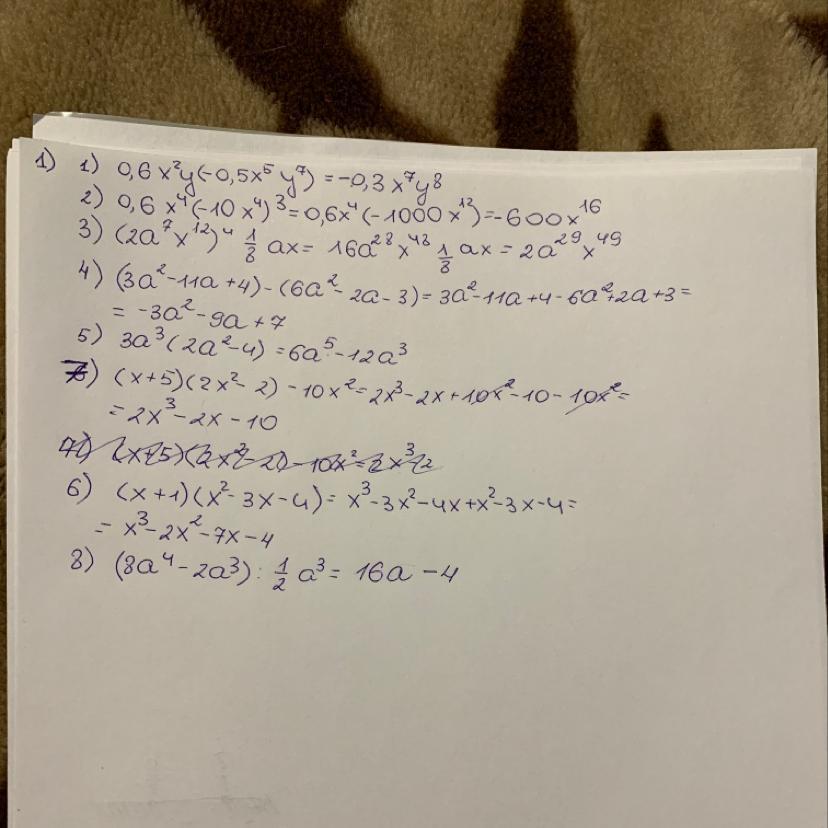 1) 1) 0,6x²y(-0,5x⁵y⁷)=-0,3x⁷y⁸
2) 0,6x⁴(-10x⁴)³=0,6x⁴(-1000x¹²)=-600x¹⁶
3) (2a⁷x¹²)⁴ 1/8 ax= 16a²⁸x⁴⁸ 1/8 ax = 2a²⁹x⁴⁹
4) (3a²-11a+4)-(6a²-2a-3)=3a²-11a+4-6a²+2a+3=
= -3a²-9a+7
5) 3a³(2a²-4)=6a⁵-12a³
7) (x+5)(2x²-2)-10x²=2x³-2x+10x²-10-10x²=
=2x³-2x-10
7) (x+5)(2x²-2)-10x²=2x³-2
6) (x+1)(x²-3x-4)=x³-3x²-4x+x²-3x-4=
= x³-2x²-7x-4
8) (8a⁴-2a³): 1/2 a³= 16a-4